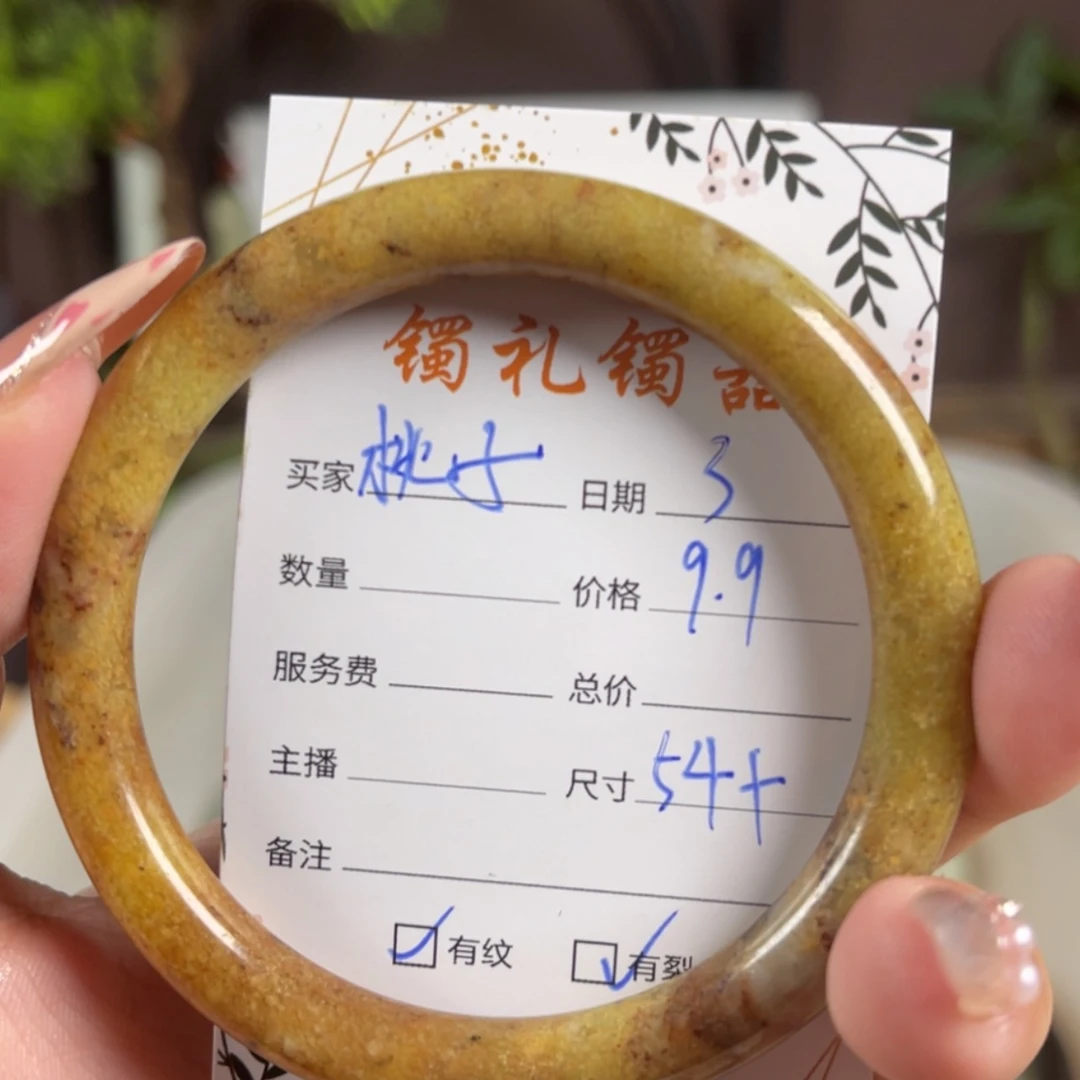 镯礼镯品
买家 桃子 日期 3
数量 价格 9.9
服务费 总价
主播 尺寸 54+
备注
有纹 有裂